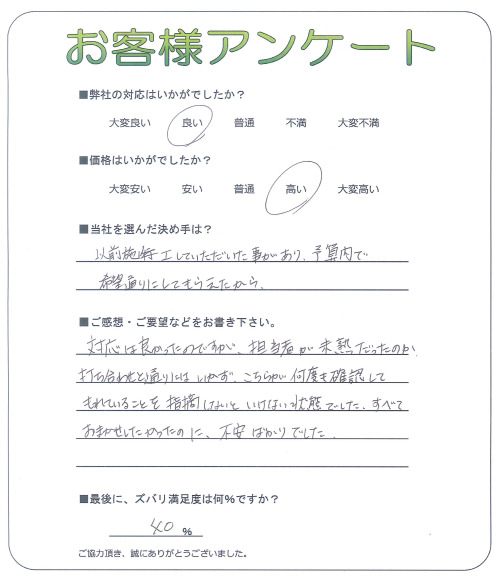 お客様アンケート
■弊社の対応はいかがでしたか?
大変良い 良い 普通 不満 大変不満
■価格はいかがでしたか?
大変安い 安い 普通 高い 大変高い
■当社を選んだ決め手は?
以前施工していただいた事があり、予算内で
希望通りにしてもらえたから。
■ご感想・ご要望などをお書き下さい。
対応は良かったのですが、担当者が未熟だったのか
打ち合わせ通りにはいかず、こちらが何度も確認して
もれていることを指摘しないといけない状態でした。すべて
おまかせしたかったのに、不安ばかりでした。
■最後に、ズバリ満足度は何%ですか?
40 %
ご協力頂き、誠にありがとうございました。